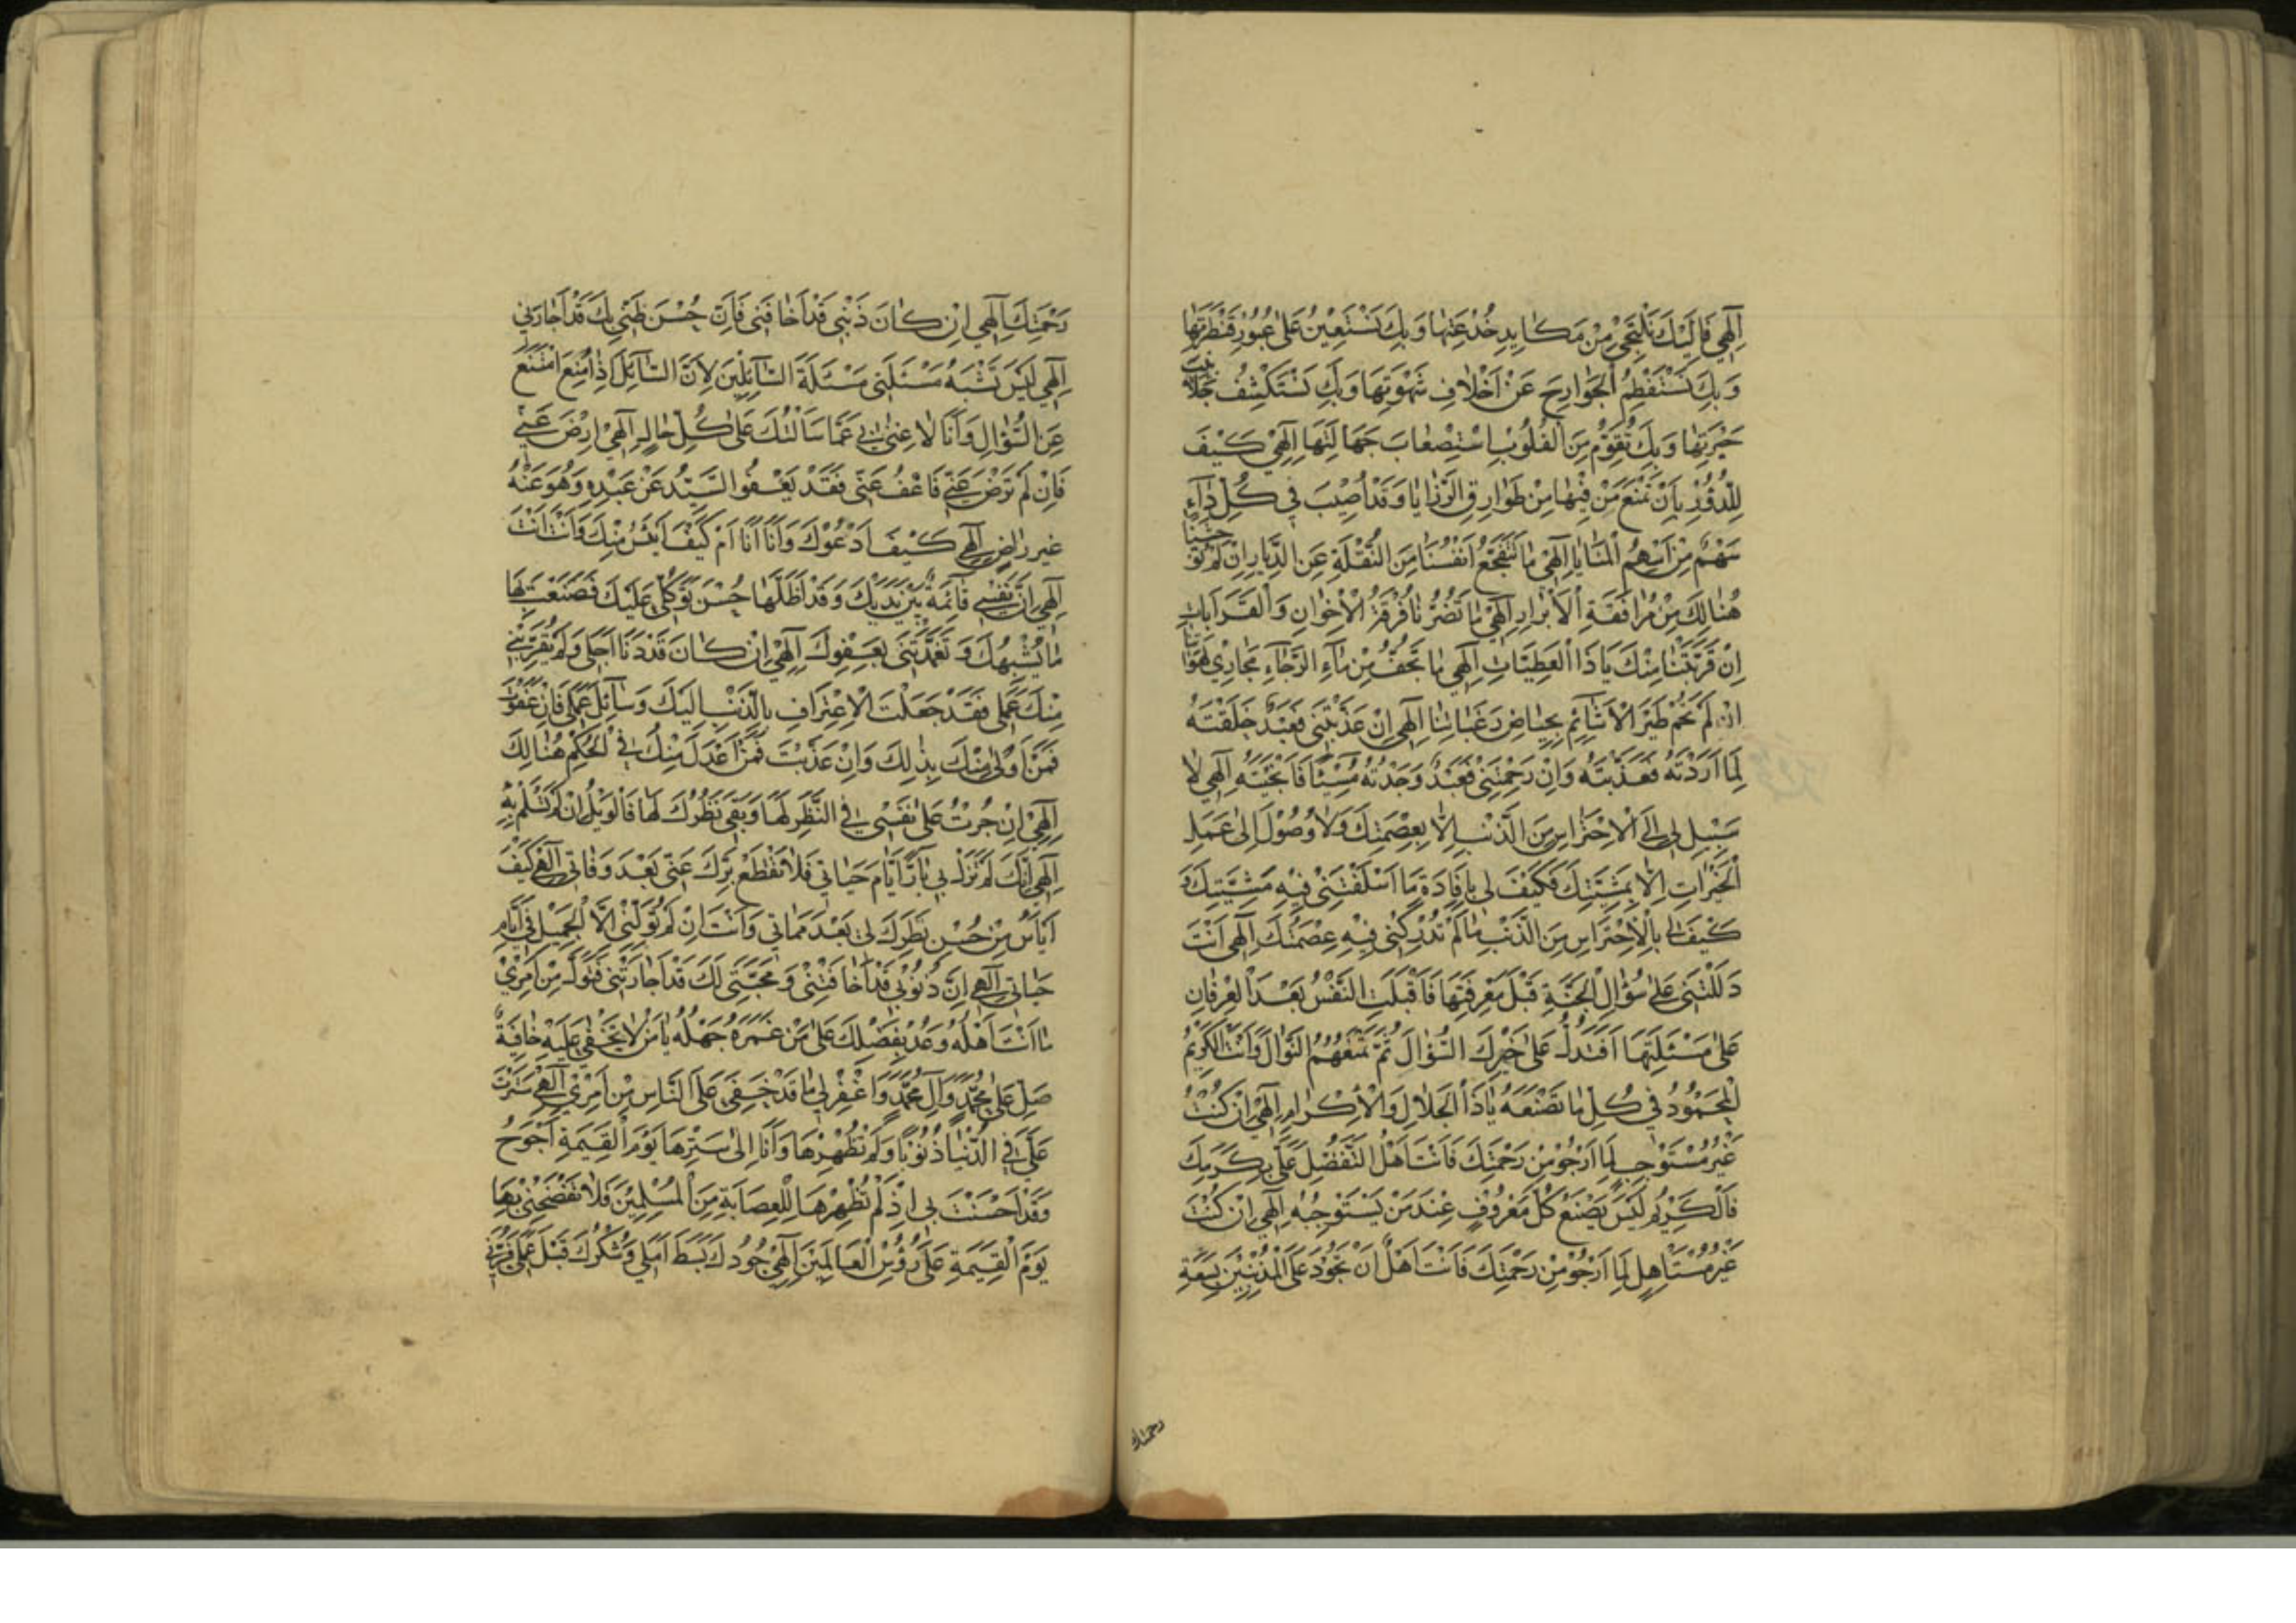 اِلٰهي فَاِلَيْكَ نَلْتَجِيُ مِنْ مَكٰايِدِ خُدْعَتِهٰا وَبِكَ نَسْتَعِيْنُ عَلىٰ عُبُوْرِ قَنْطَرَتِهٰا
وَبِكَ نَسْتَفْطِمُ الْجَوٰارِحَ عَنْ اَخْلٰافِ شَهْوَتِهَا وَبِكَ نَسْتَكْشِفُ جَلٰابِيْبَ
حَيْرَتِهٰا وَبِكَ تُقَوَّمُ مِنَ الْقُلُوْبِ اِسْتِصْعٰابَ جَهَالَتِهَا اِلٰهِيْ كَيْفَ
لِلدُّوْرِ بِاَنْ تَمْنَعَ مَنْ فِيْهٰا مِنْ طَوٰارِقِ الرَّزٰايٰا وَقَدْ اُصِيْبَ فِي كُلِّ دٰارٍ
سَهْمٌ مِنْ اَسْهُمِ الْمَنٰايٰا اِلٰهِيْ مٰا تَتَفَجَّعُ اَنْفُسُنٰا مِنَ النُّقْلَةِ عَنِ الدِّيٰارِ اِنْ لَمْ تُوْحِشْنٰا
هُنٰالِكَ مِنْ مُرٰافَقَةِ الْاَبْرٰارِ اِلٰهِيْ مٰا تَضُرُّنٰا فُرْقَةُ الْاِخْوٰانِ وَالْقَرَابَاتِ
اِنْ قَرَّبْتَنٰا مِنْكَ يَا ذَا الْعَطِيّٰاتِ اِلٰهِي مٰا تَجِفُّ مِنْ مٰاۤءِ الرَّجٰاۤءِ مَجٰارِيْ لَهَوٰاتِنٰا
اِنْ لَمْ تَحُمْ طَيْرُ الْاَشٰائِمِ بِحِيٰاضِ رَغَبٰاتِنٰا اِلٰهِي اِنْ عَذَّبْتَنِي فَعَبْدٌ خَلَقْتَهُ
لِمٰا اَرَدْتَهُ فَعَذَّبْتَهُ وَاِنْ رَحِمْتَنِيْ فَعَبْدٌ وَجَدْتَهُ مُسِيْئًا فَاَنْجَيْتَهُ اِلٰهِي لٰا
سَبِيْلَ لِي اِلَى الْاِحْتِرٰاسِ مِنَ الذَّنْبِ اِلّٰا بِعِصْمَتِكَ وَلٰا وُصُوْلَ اِلىٰ عَمَلِ
الْخَيْرٰاتِ اِلّٰا بِمَشِيَّتِكَ فَكَيْفَ لِي بِاِفٰادَةِ مٰا اَسْلَفْتَنِيْ فِيْهِ مَشِيَّتِكَ وَ
كَيْفَ لِي بِالْاِحْتِرَاسِ مِنَ الذَّنْبِ مٰا لَمْ تُدْرِكْنِي فِيْهِ عِصْمَتُكَ اِلٰهِي اَنْتَ
دَلَلْتَنِي عَلىٰ سُؤٰالِ الْجَنَّةِ قَبْلَ مَعْرِفَتِهَا فَاَقْبَلَتِ النَّفْسُ بَعْدَ الْعِرْفٰانِ
عَلىٰ مَسْئَلَتِهَا اَفَتَدُلُّ عَلىٰ خَيْرِكَ السُّؤٰالَ ثُمَّ تَمْنَعُهُمُ النَّوٰالَ وَاَنْتَ الْكَرِيْمُ
الْمَحْمُوْدُ فِي كُلِّ مٰا تَصْنَعُهُ يٰا ذَا الْجَلٰالِ وَالْاِكْرٰامِ اِلٰهِيْ اِنْ كُنْتُ
غَيْرَ مُسْتَوْجِبٍ لِمٰا اَرْجُوْ مِنْ رَحْمَتِكَ فَاَنْتَ اَهْلُ التَّفَضُّلِ عَلَيَّ بِكَرَمِكَ
فَالْكَرِيْمُ لَيْسَ يَصْنَعُ كُلَّ مَعْرُوْفٍ عِنْدَ مَنْ يَسْتَوْجِبُهُ اِلٰهِي اِنْ كُنْتُ
غَيْرَ مُسْتَاْهِلٍ لِمٰا اَرْجُوْ مِنْ رَحْمَتِكَ فَاَنْتَ اَهْلٌ اَنْ تَجُوْدَ عَلَى الْمُذْنِبِيْنَ بِسَعَةِ
رحمتك
رَحْمَتِكَ اِلٰهِي اِنْ كٰانَ ذَنْبِي قَدْ اَخٰافَنِي فَاِنَّ حُسْنَ ظَنِّي بِكَ قَدْ اَجٰارَنِي
اِلٰهِي لَيْسَ تَشْبَهُ مَسْئَلَتِي مَسْئَلَةَ السّٰاۤئِلِيْنَ لِاَنَّ السّٰاۤئِلَ اِذٰا مُنِعَ امْتَنَعَ
عَنِ السُّؤٰالِ وَاَنَا لٰا غِنىٰ بِي عَمّٰا سَاَلْتُكَ عَلىٰ كُلِّ حٰالٍ اِلٰهِيْ اِرْضَ عَنِّي
فَاِنْ لَمْ تَرْضَ عَنِّي فَاعْفُ عَنِّي فَقَدْ يَعْفُوا السَّيِّدُ عَنْ عَبْدِهِ وَهُوَ عَنْهُ
غَيْرُ رٰاضٍ اِلٰهِي كَيْفَ اَدْعُوْكَ وَاَنَا اَنَا اَمْ كَيْفَ اَيْئَسُ مِنْكَ وَاَنْتَ اَنْتَ
اِلٰهِي اِنَّ نَفْسِي قٰائِمَةٌ بَيْنَ يَدَيْكَ وَقَدْ اَظَلَّهٰا حُسْنُ تَوَكُّلِي عَلَيْكَ فَصَنَعْتَ بِهَا
مٰا يُشْبِهُكَ وَتَغَمَّدْتَنِي بِعَفْوِكَ اِلٰهِيْ اِنْ كٰانَ قَدْ دَنَا اَجَلِي وَلَمْ يُقَرِّبْنِي
مِنْكَ عَمَلِي فَقَدْ جَعَلْتُ الْاِعْتِرَافَ بِالذَّنْبِ اِلَيْكَ وَسٰاۤئِلَ عَمَلِي فَاِنْ عَفَوْتَ
فَمَنْ اَوْلىٰ مِنْكَ بِذٰلِكَ وَاِنْ عَذَّبْتَ فَمَنْ اَعْدَلُ مِنْكَ فِي الْحُكْمِ هُنٰالِكَ
اِلٰهِيْ اِنْ جُرْتُ عَلىٰ نَفْسِي فِي النَّظَرِ لَهٰا وَبَقِيَ نَظَرُكَ لَهَا فَالْوَيْلُ اِنْ لَمْ تَسْلَمْ بِهِ
اِلٰهِي اِنَّكَ لَمْ تَزَلْ بِي بٰارًّا اَيّٰامَ حَيٰاتِي فَلٰا تَقْطَعْ بِرَّكَ عَنِّي بَعْدَ وَفٰاتِي اِلٰهِي كَيْفَ
اَيْاَسُ مِنْ حُسْنِ نَظَرِكَ لِي بَعْدَ مَمٰاتِي وَاَنْتَ اِنْ لَمْ تُوَلِّنِيْ اِلَّا الْجَمِيْلَ فِي اَيّٰامِ
حَيٰاتِي اِلٰهِي اِنَّ ذُنُوْبِي قَدْ اَخٰافَتْنِيْ وَمَحَبَّتِي لَكَ قَدْ اَجٰارَتْنِي فَتَوَلَّ مِنْ اَمْرِيْ
مٰا اَنْتَ اَهْلُهُ وَعُدْ بِفَضْلِكَ عَلىٰ مَنْ غَمَرَهُ جَهْلُهُ يٰا مَنْ لٰا تَخْفىٰ عَلَيْهِ خٰافِيَةٌ
صَلِّ عَلىٰ مُحَمَّدٍ وَاٰلِ مُحَمَّدٍ وَاغْفِرْ لِي مٰا قَدْ خَفِيَ عَلَى النَّاسِ مِنْ اَمْرِيْ اِلٰهِيْ سَتَرْتَ
عَلَيَّ فِي الدُّنْيٰا ذُنُوْبًا وَلَمْ تُظْهِرْهٰا وَاَنَا اِلىٰ سَتْرِهَا يَوْمَ الْقِيٰمَةِ اَحْوَجُ
وَقَدْ اَحْسَنْتَ بِي اِذْ لَمْ تُظْهِرْهَا لِلْعِصَابَةِ مِنَ الْمُسْلِمِيْنَ فَلٰا تَفْضَحْنِيْ بِهَا
يَوْمَ الْقِيٰمَةِ عَلىٰ رُؤُسِ الْعٰالَمِيْنَ اِلٰهِيْ جُوْدُكَ بَسَطَ اَمَلِي وَشُكْرُكَ قَبِلَ عَمَلِي